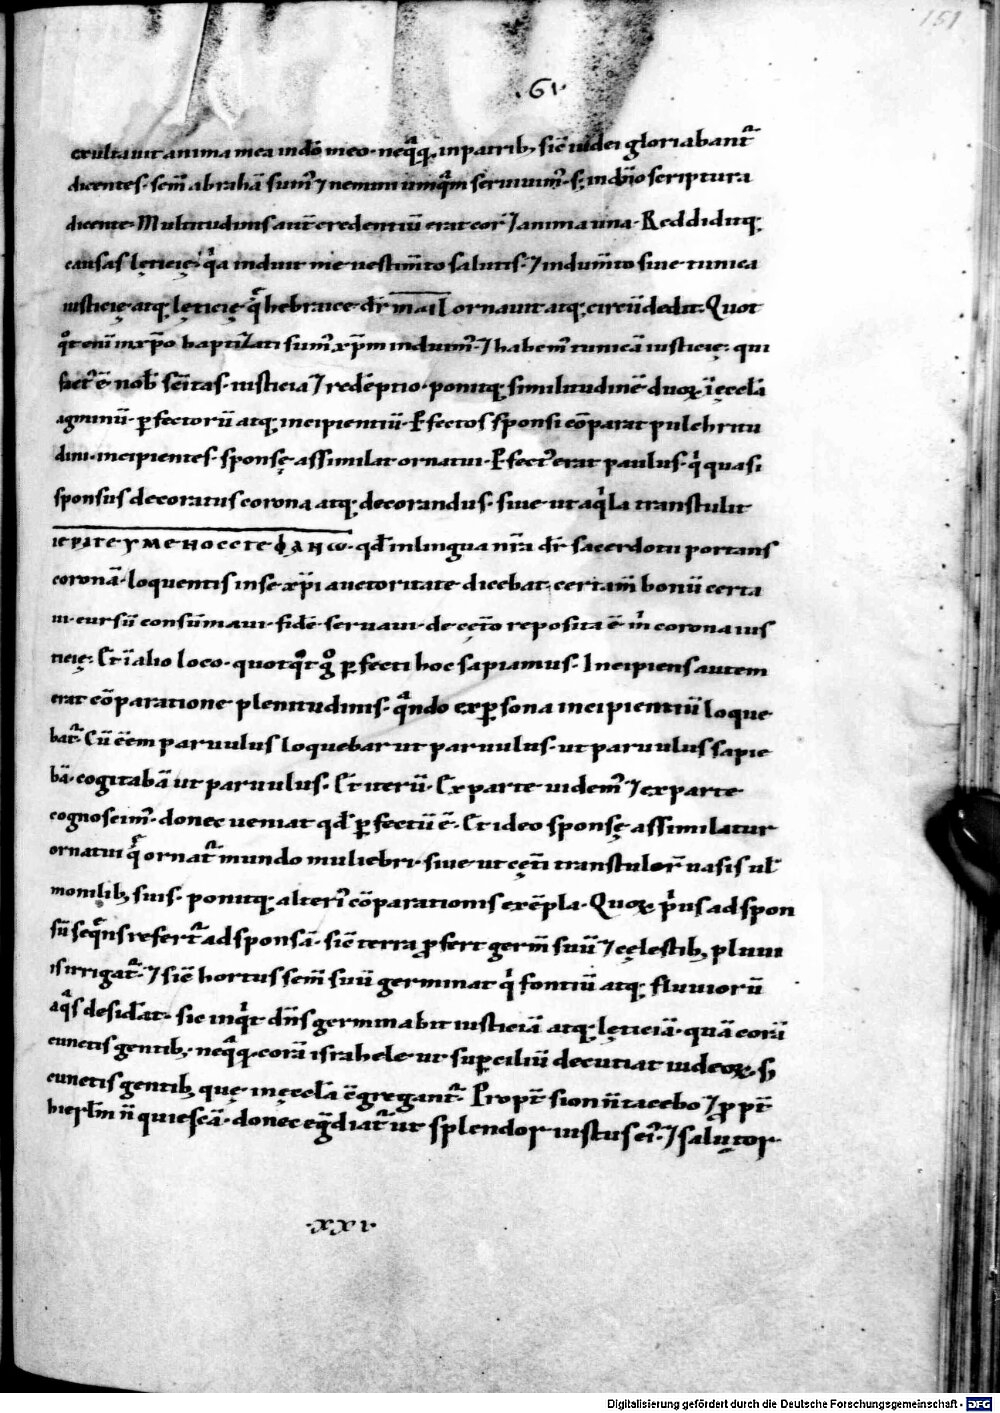 151
.61.
exultauit anima mea indõ meo· neq̃q̨. inpatrib; sic̃ iudei gloriabant᷑
dicentes· sem̃ abrahã sum᷒ ⁊ nemini umq̃m seruiuim᷒· s; indñio scriptura
dicente· Multitudinis aut̃ credentiũ erat cor᷒ ⁊ anima una· Reddiditq;
causas lęticię· q̃a induit me uestim̃to salutis· ⁊ indum̃to siue tunica
iusticię atq; lęticię q̃ hebraice dr̃ mail ornauit atq; circũdedit· Quot
q̊t enĩ inxp̃o baptizati sum᷒ xp̃m induim᷒· ⁊ habem᷒ tunicã iusticię: qui
fact᷒ ẽ nob̃ sc̃itas· iusticia ⁊ redẽptio· ponitq; similitudinẽ duoꝝ ĩ ęccl̃a
agminũ· ꝑfectorũ atq; incipientiũ· Ꝑfectos sponsi cõparat pulchritu
dini· incipientes· sponsę assimilat ornatui· Ꝑfect᷒ erat paulus· q̇ quasi
sponsus decoratus corona atq; decorandus· siue ut aq̇la transtulit
ιεριτευμενοϲ ϲτεφανω· qd̃ inlingua nr̃a dr̃ sacerdotii portans
coronã· loquentis inse xp̃i auctoritate dicebat· certam̃ bonũ certa
ui· cursũ consũmaui· fidẽ seruaui· de cęt̃o reposita ẽ m̃ corona ius
ticię: Et ĩ alio loco· quotq̊t g̊ ꝑfecti hoc sapiamus· Incipiens autem
erat cõparatione plenitudinis· q̃ndo ex ꝑsona incipientiũ loque
bat᷑· Cũ ẽem paruulus loquebar ut paruulus· ut paruulus sapie
bã· cogitabã ut paruulus· Et iterũ· Ex parte uidem᷒ ⁊ ex parte
cognoscim᷒· donec ueniat qd̃ ꝑfectũ ẽ· Et ideo sponsę assimilatur
ornatui q̃ ornat᷑ mundo muliebri· siue ut cęt̃i transtuler̃ uasis ul̃
monilib; suis· ponitq; alteri᷒ cõparationis exẽpla· Quoꝝ p̃us ad spon
sũ seq̃ns refert᷑ ad sponsã· sic̃ terra ꝓfert germ̃ suũ ⁊ cęlestib; pluui
is irrigat᷑· ⁊ sic̃ hortus sem̃ suũ germinat q̇ fontiũ atq; fluuiorũ
aq̃s desid̃at· sic inq̇t dñs germinabit iusticiã atq; lęticiã· quã corã
cunctis gentib;· neq̃q̨. corã israhele ut suꝑciliũ decutiat iudeoꝝ· s;
cunctis gentib; quę inęccl̃a c̃gregant᷑· Propt̃ sion ñ tacebo ⁊ ꝓpt̃
hierl̃m ñ quiescã· donec eg̃diat᷑ ut splendor iustus ei᷒· ⁊ saluator
·xxi·
Digitalisierung gefördert durch die Deutsche Forschungsgemeinschaft - DFG